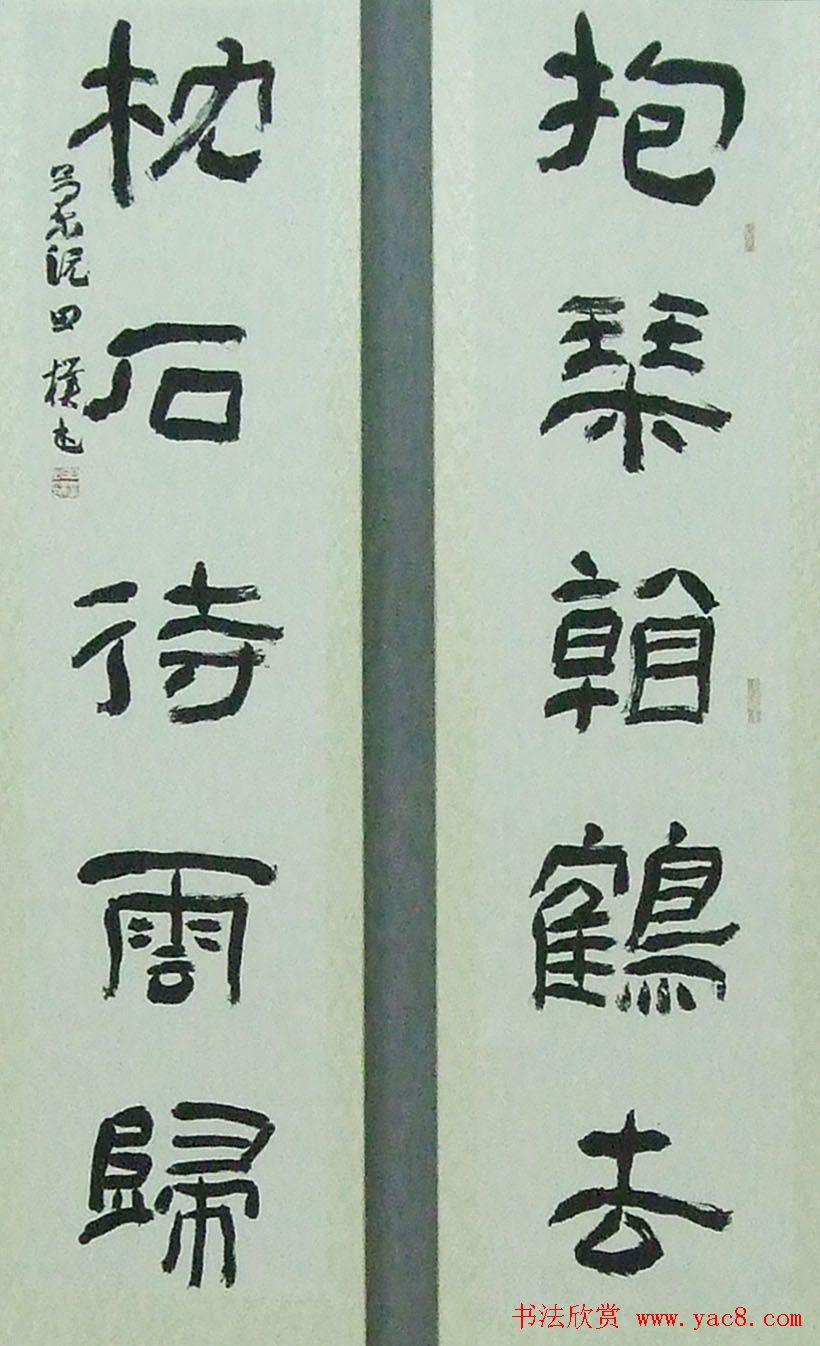 抱琴看鶴去
枕石待雲歸
田樸
书法欣赏 www.yac8.com